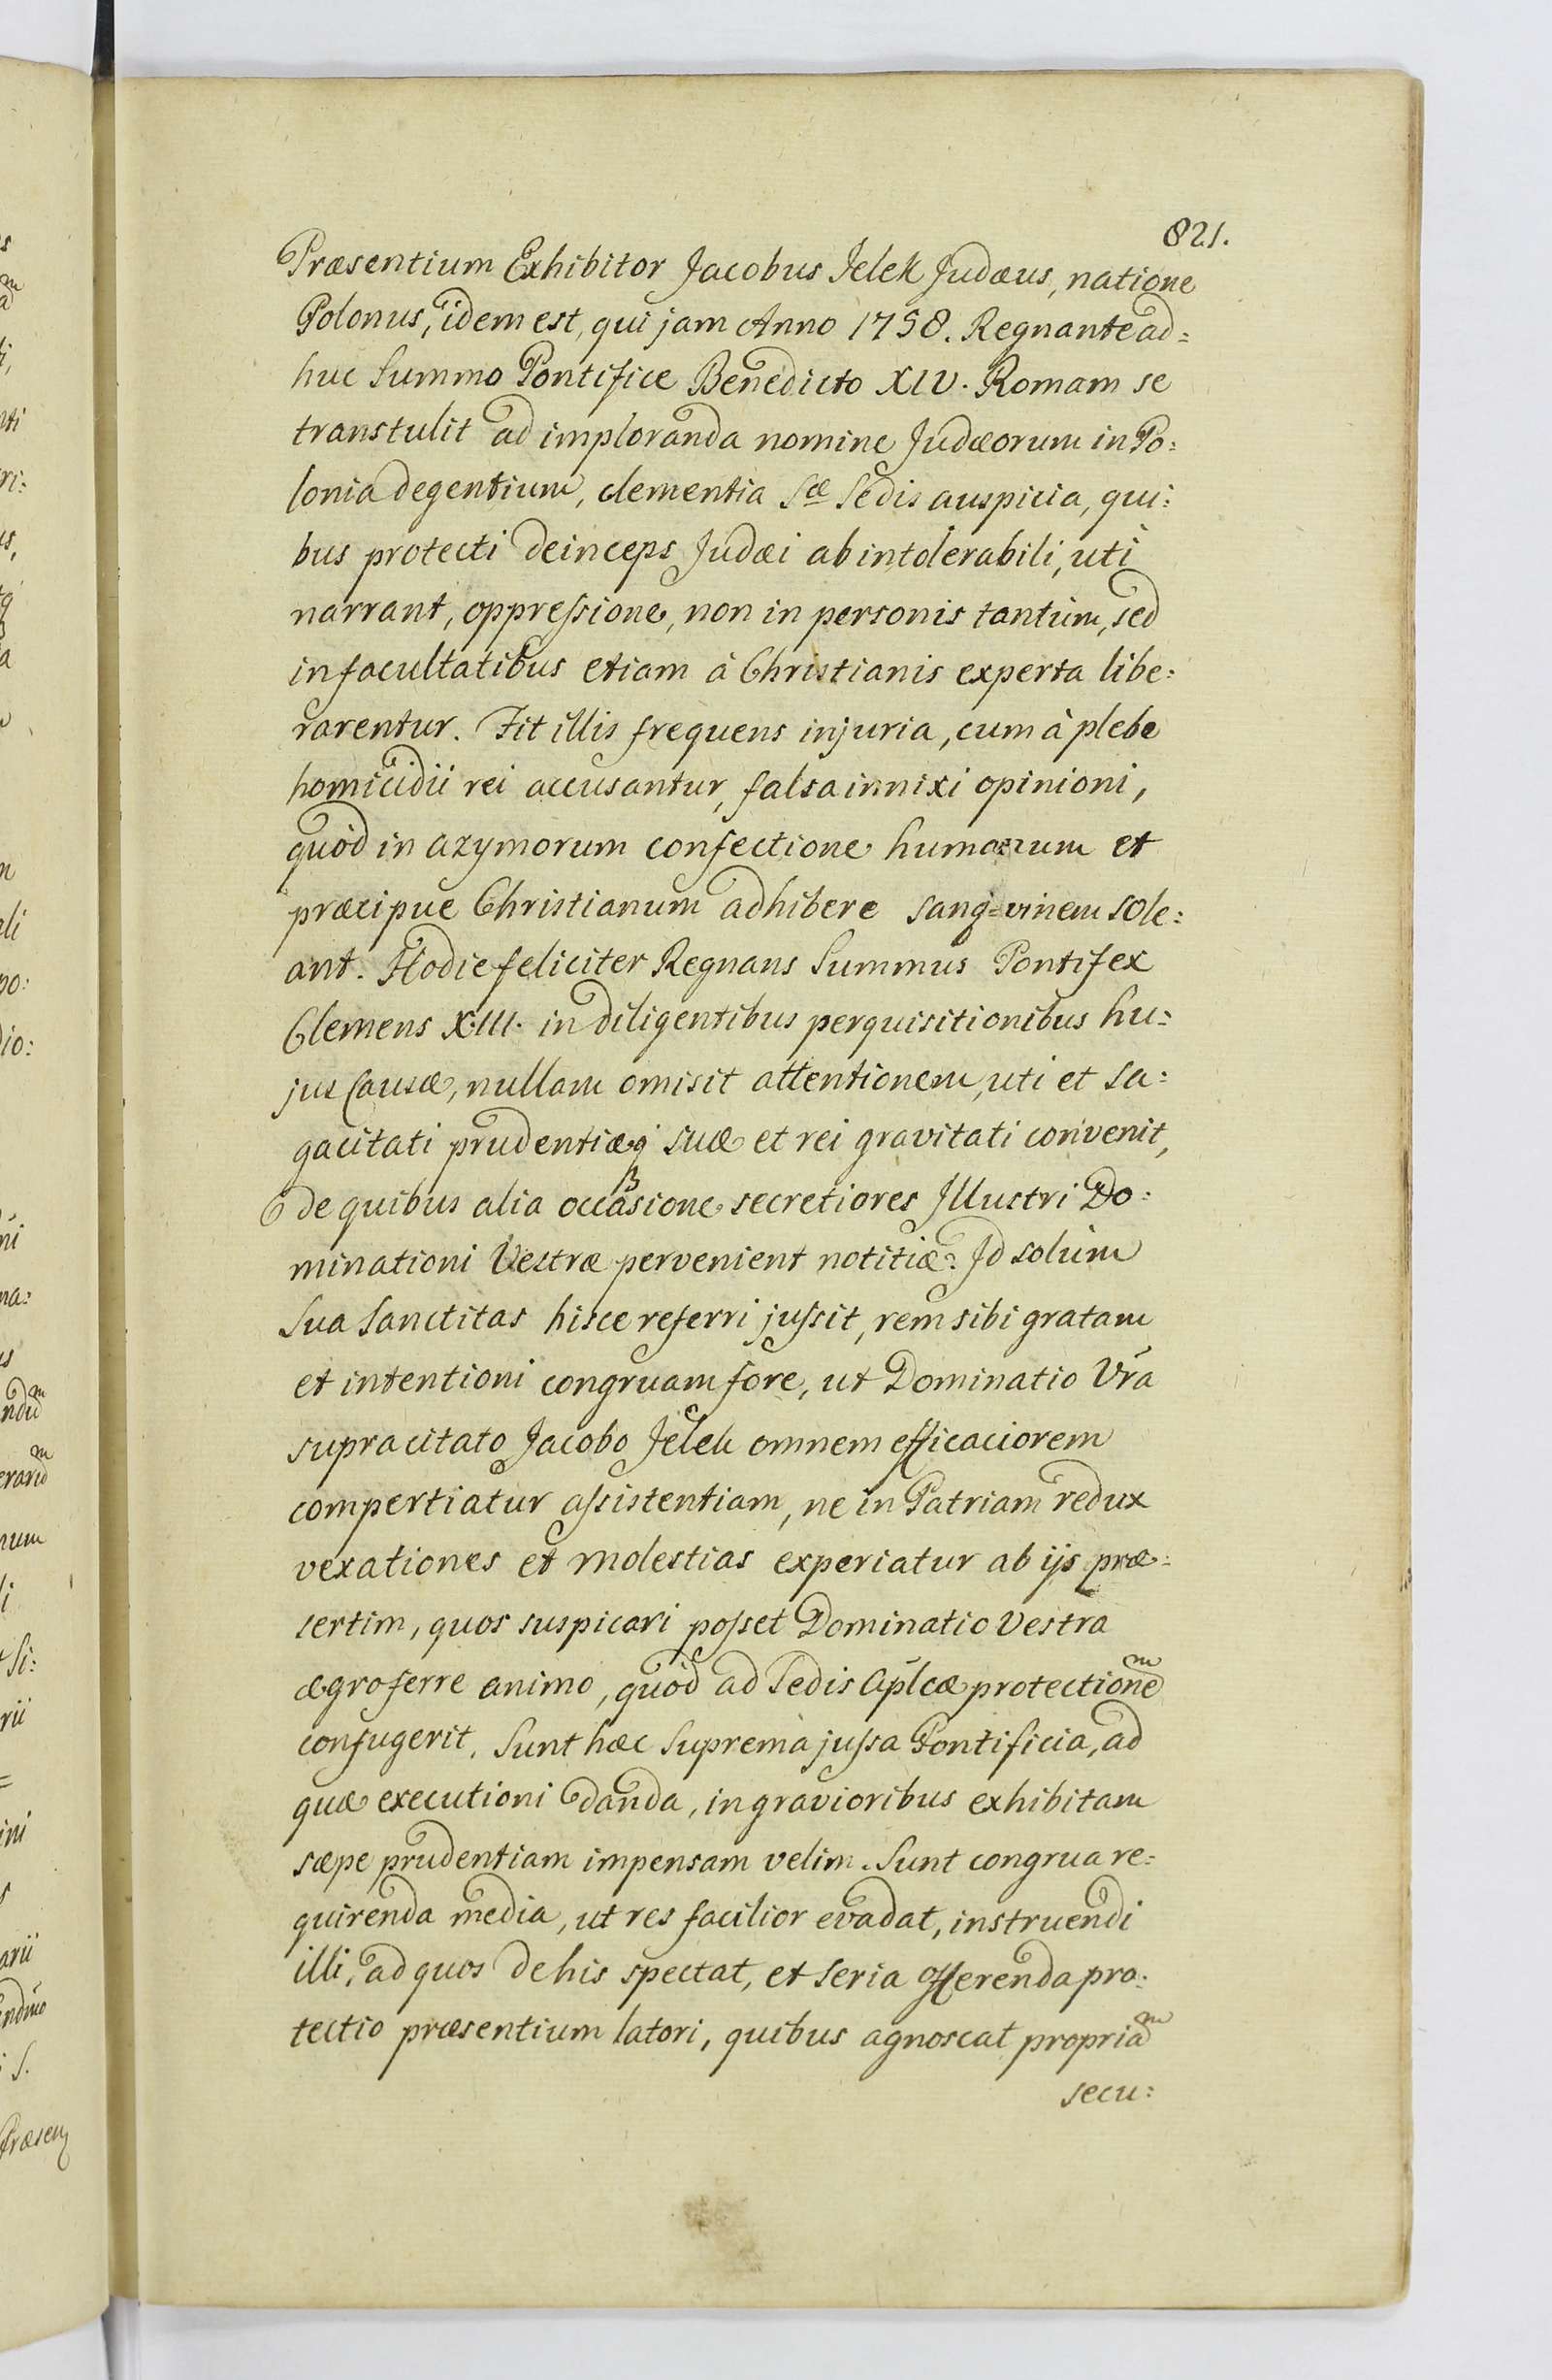 821.
Præsentium Exhibitor Jacobus Jelek Judæus, natione
Polonus, idem est, qui jam Anno 1758. Regnante ad=
huc Summo Pontifice Benedicto XIV. Romam se
transtulit ad imploranda nomine Judæorum in Po=
lonia degentium, clementia Sæ Sedis auspicia, qui=
bus protecti deinceps Judæi ab intolerabili, uti
narrant, oppressione, non in personis tantùm, sed
in facultatibus etiam à Christianis experta libe=
rarentur. Fit illis frequens injuria, cum à plebe
homicidii rei accusantur, falsa innixi opinioni,
quòd in azymorum confectione humanum et
præcipue Christianum adhibere sang=vinem sole=
ant. Hodie feliciter Regnans Summus Pontifex
Clemens XIII. in diligentibus perquisitionibus hu=
jus Causæ, nullam omisit attentionem, uti et sa=
gacitati prudentiæq suæ et rei gravitati convenit,
de quibus alia occasione secretiores Jllustri Do=
minationi Vestræ pervenient notitiæ. Jd solùm
Sua Sanctitas hisce referri jussit, rem sibi gratam
et intentioni congruam fore, ut Dominatio Vra
supracitato Jacobo Jelek omnem efficaciorem
compertiatur assistentiam, ne in Patriam redux
vexationes et molestias experiatur ab ijs præ=
sertim, quos suspicari posset Dominatio Vestra
ægro ferre animo, quòd ad Sedis Aplcæ protectionem
confugerit. Sunt hæc Suprema jussa Pontificia, ad
quæ executioni danda, in gravioribus exhibitam
sæpe prudentiam impensam velim. Sunt congrua re=
quirenda media, ut res facilior evadat, instruendi
illi, ad quos de his spectat, et seria offerenda pro=
tectio præsentium latori, quibus agnoscat propriam
secu=